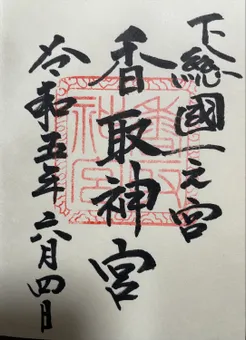 下総國一之宮
香取神宮
令和五年六月四日
香取神宮